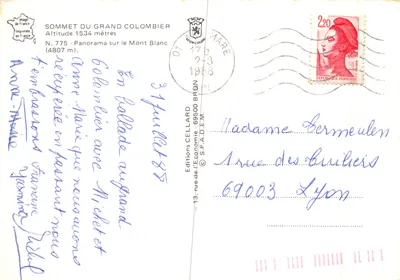 SOMMET DU GRAND COLOMBIER
Altitude 1534 mètres
N. 775 - Panorama sur le Mont Blanc
(4807 m).
31 juillet 88
En ballade au grand
Colombier avec Michel et
Anne Marie que nous avons
récupérée en passant nous
t'embrassons Francine
Anne-Marie
Michel
Editions CELLARD
13, rue de l'Economie - 69500 BRON
© S.P.A.D.E.M.
01
1988
2,20
REPUBLIQUE FRANCAISE
Madame Cermeulen
1 rue des Cuiliers
69003 Lyon